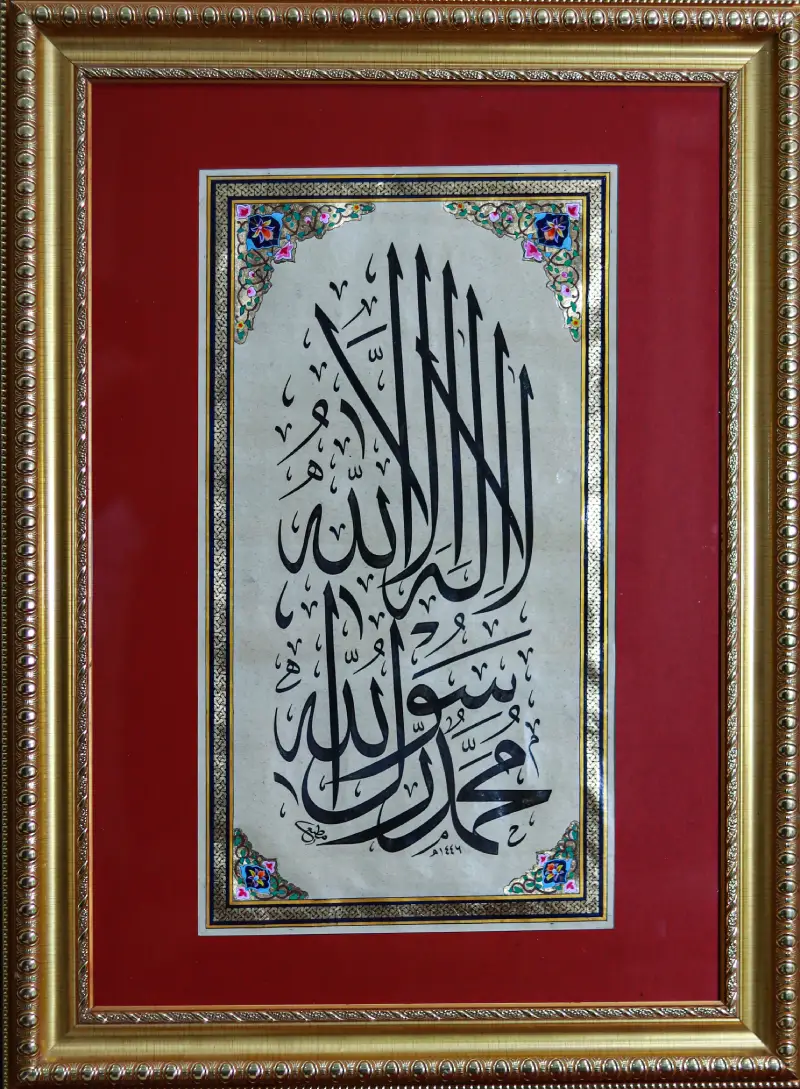 لا إله إلا الله
محمد رسول الله
١٤٤٦هـ